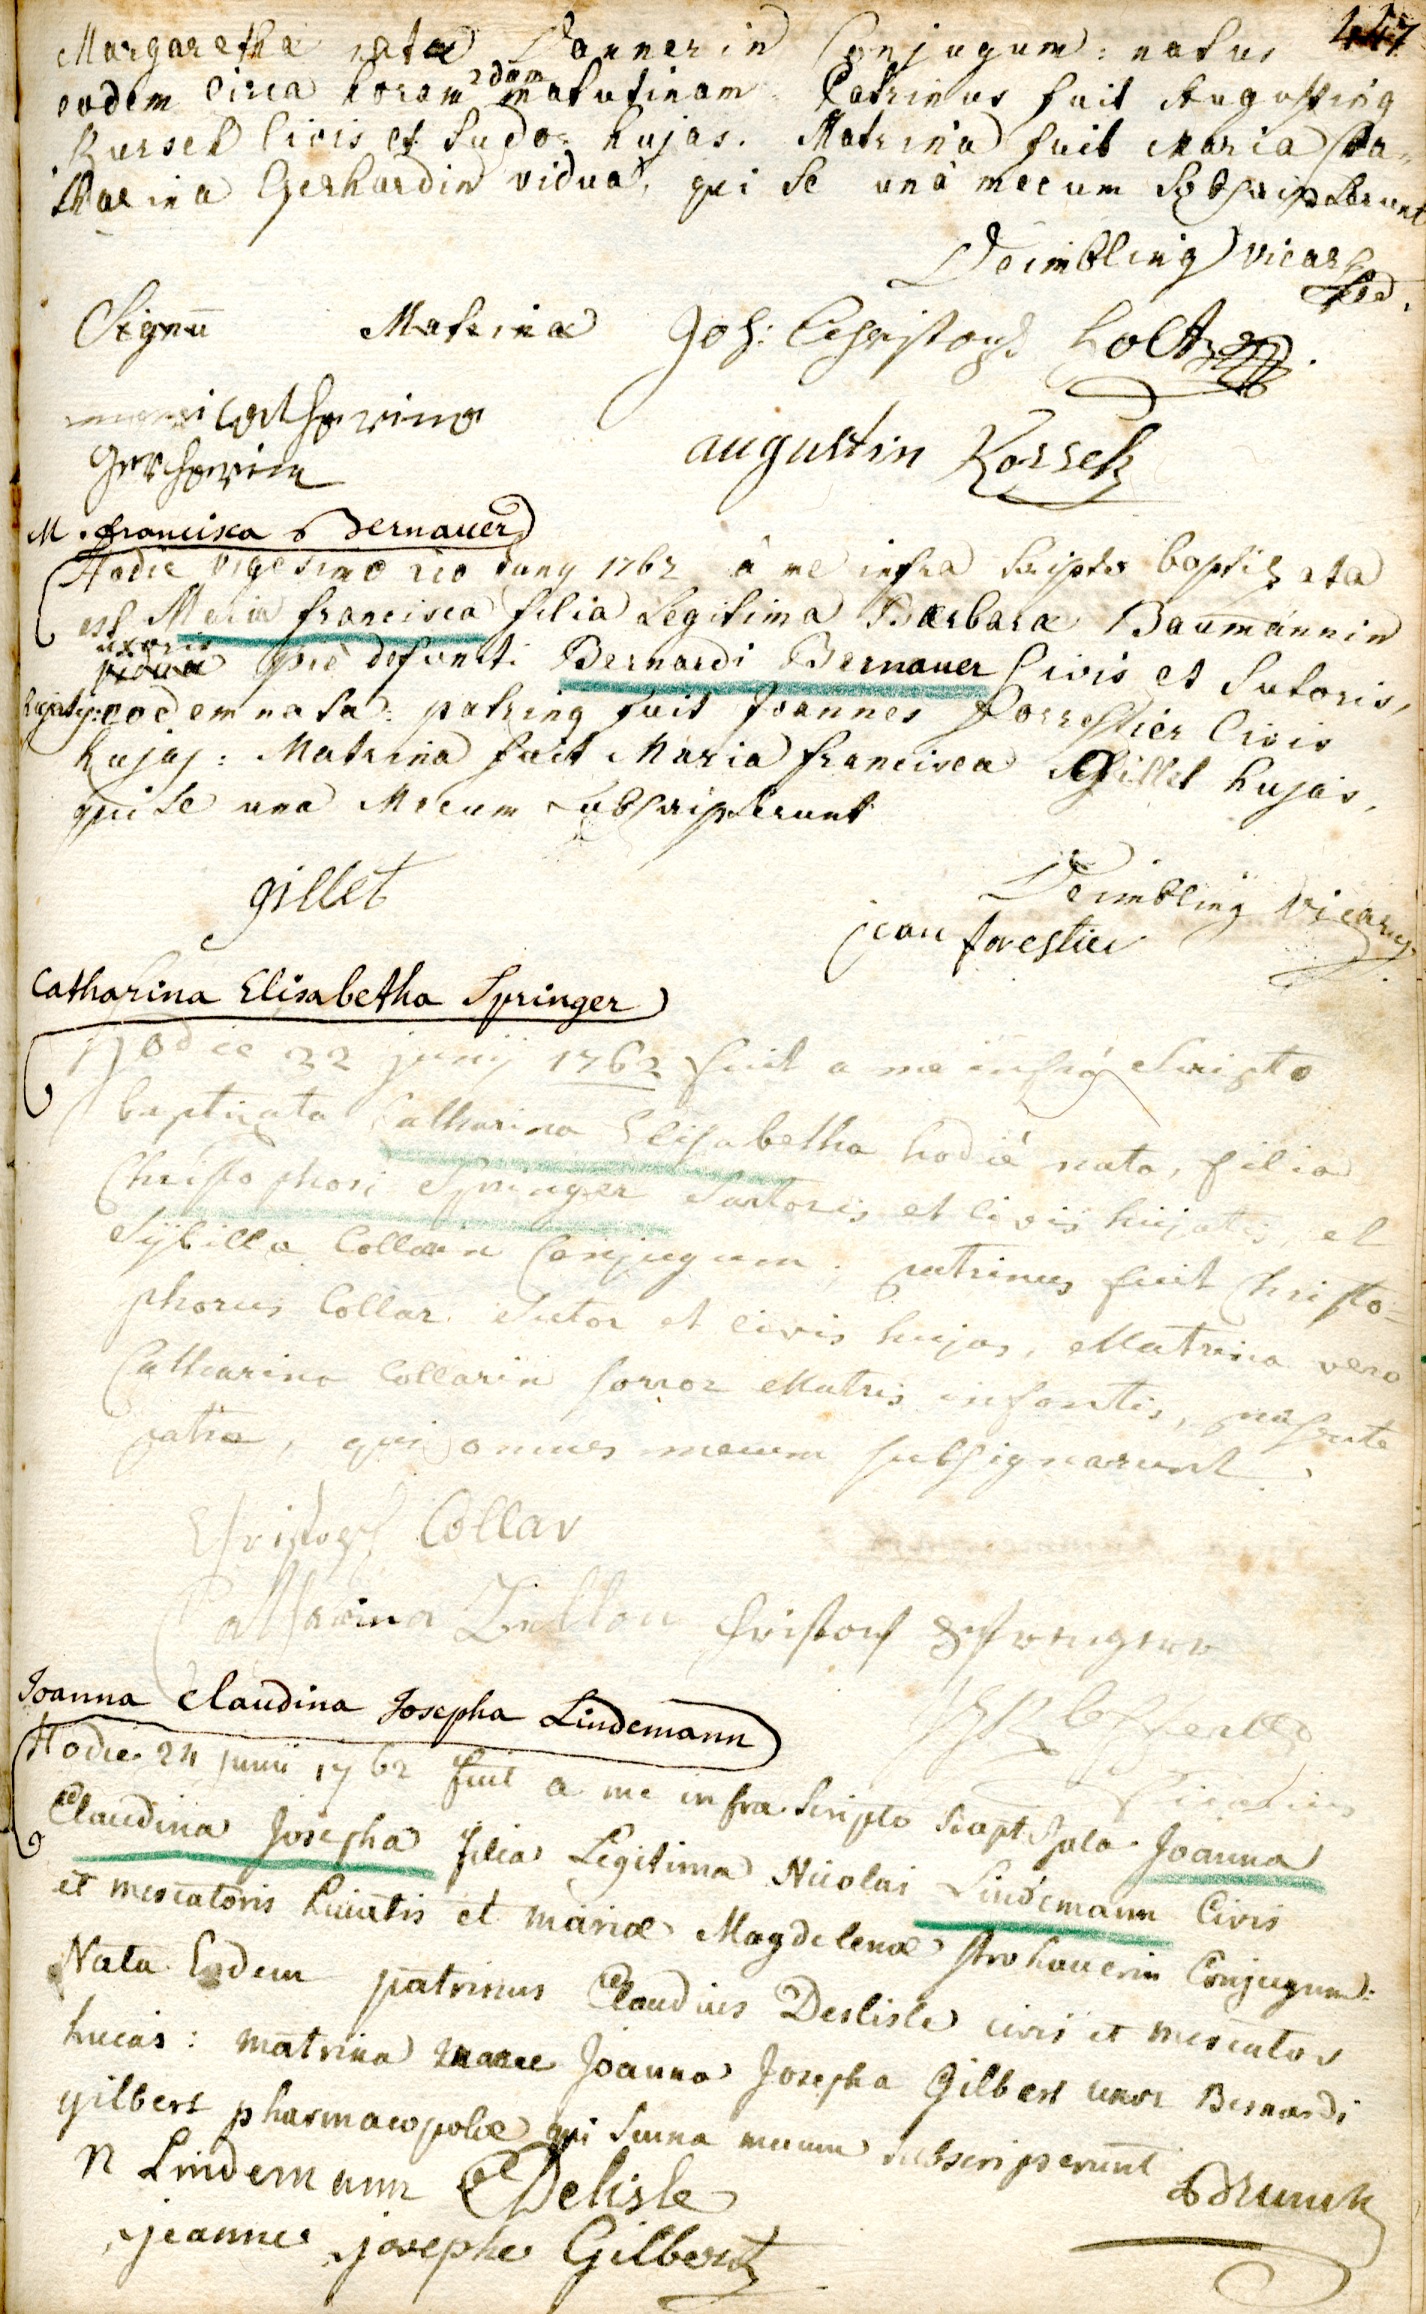 447
Margaretha nata Dannerin Conjugum: natus
eodem circa horam 2dam matutinam Patrinus fuit Augusting
Kurseh Civis et Sudor hujas. Matrina fuit Maria Ca-
tharina Gerhardin vidua, qui se unà mecum Subscripserunt
Deimbling vicarg
Signu Matrinae Joh: Christoph Holtz
mari Catharina
Gerharin
augustin Korseh
M. francisca Bernauer
Hodie vigesimo 2do Juny 1762 à me infra scripto baptizata
est Maria francisca filia Legitima Barbarae Baumännin
uxoris
pie defuncti Bernardi Bernauer Civis et Sutoris,
hujatis: eodem nata: patring fuit Joannes Forrestier Civis
hujas: Matrina fuit Maria francisca Gillet hujas,
qui se una Mecum Subscripserunt
Deimbling vicarg
gillet
jean forestier
Catharina Elisabetha Springer
Hodie 22 junij 1762 fuit a me infrà scripto
baptizata Catharina Elisabetha hodiè nata, filia
Christophori Springer Sartoris et civis hujatis, et
Sÿbilla Collarin Conjugum; patrinus fuit Christo-
phorus Collar Sutor et civis hujas, Matrina vero
Catharina Collarin soror Matris infantis, praesente
patre, qui omnes mecum subsignarunt.
Christoph Collar
Catharina
Christoph
Joanna Claudina Josepha Lindemann
Hodie 24 junii 1762 fuit a me infra Scripto Baptisata Joanna
Claudina Josepha filia Legitima Nicolai Lindemann Civis
et mercatoris huiatis et mariae Magdelenae Strohauerin Conjugum:
Nata Eodem patrinus Claudius Deslisle civis et mercator
hucas: matrina Joanna Josepha Gilbert uxor Bernardi
gilbert pharmacopolae qui Suma mecum subscripserunt
N Lindemann CDelisle
Brunck
jeanne josephe Gilbert